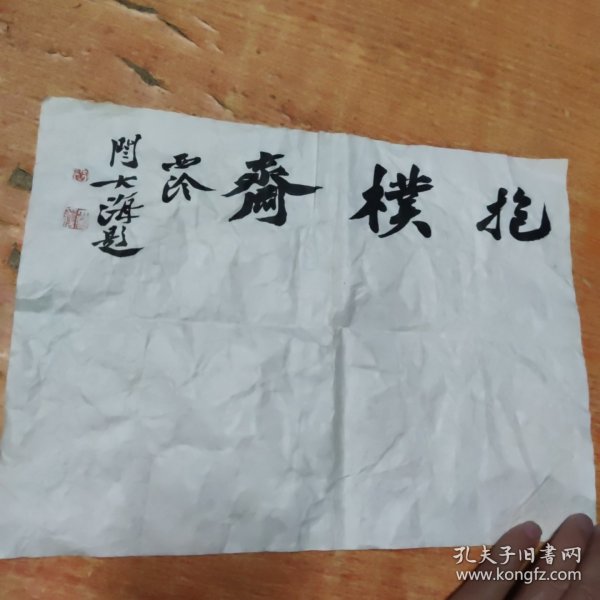 抱樸齋
閆大海題
孔夫子旧书网
www.kongfz.com